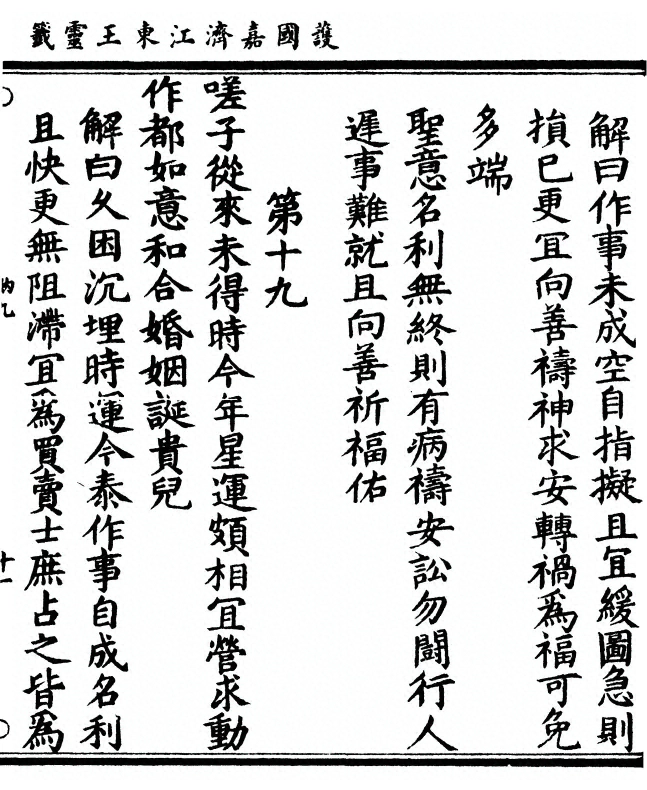 護國嘉濟江東王靈籤
解曰作事未成空自指擬且冝緩圖急則
損已更冝向善禱神求安轉禍爲福可免
多端
聖意名利無終則有病禱安訟勿闘行人
遲事難就且向善祈福佑
第十九
嗟子從來未得時今年星運頗相冝營求動
作都如意和合婚姻誕貴兒
解曰久困沉埋時運今泰作事自成名利
且快更無阻滯冝爲買賣士庶占之皆爲
十一